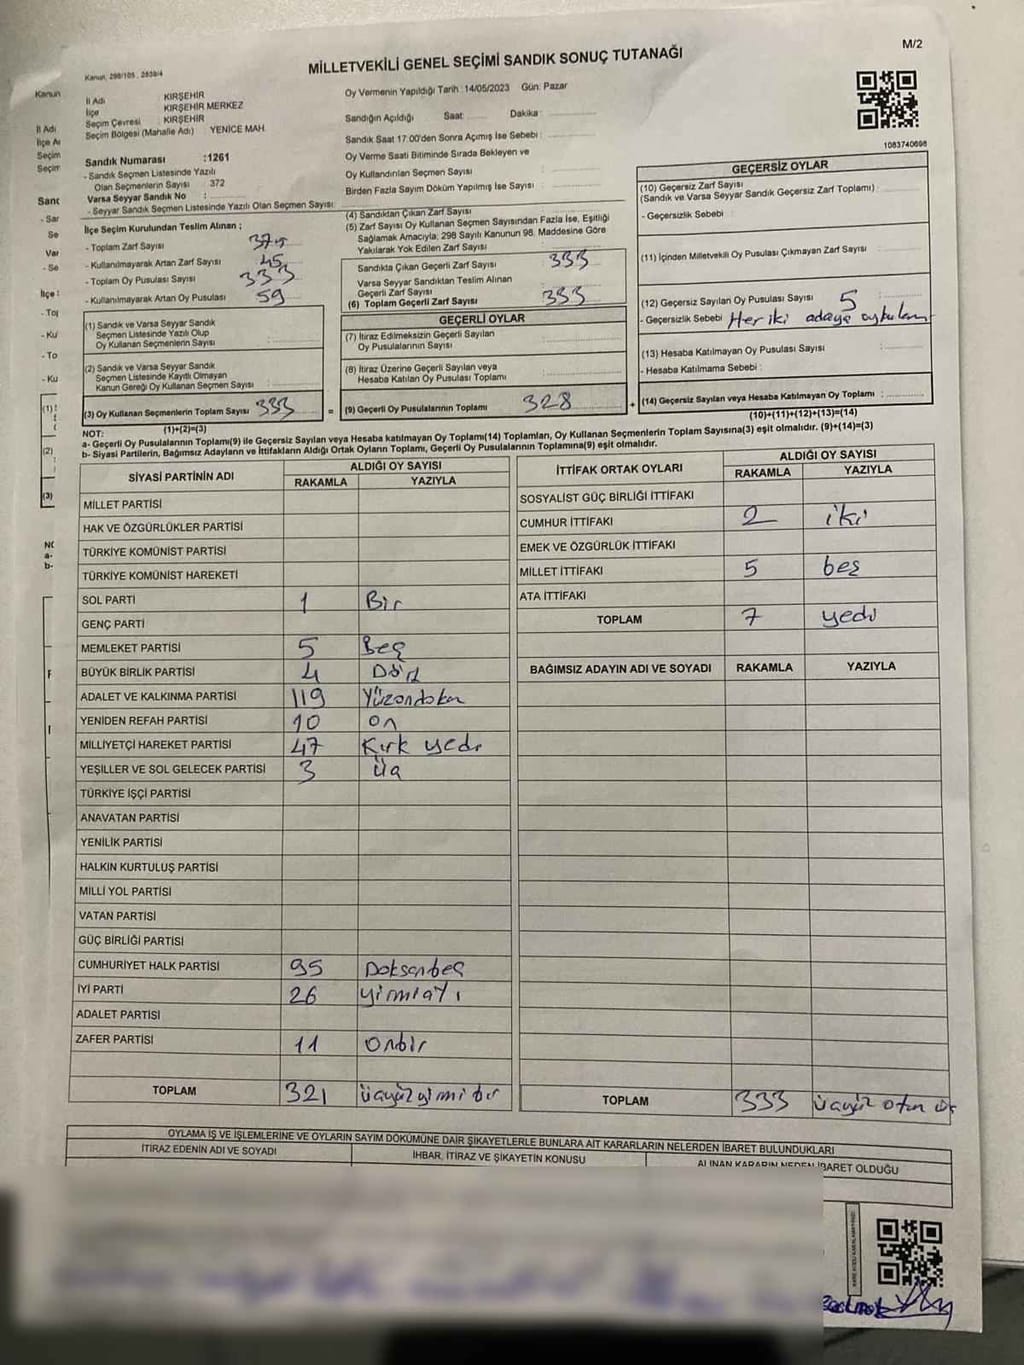 M/2
Kanun, 298/105 , 2839/4
MİLLETVEKİLİ GENEL SEÇİMİ SANDIK SONUÇ TUTANAĞI
1083740698
Kanun
İl Adı
Seçim
Seçim
İl Adı KIRŞEHİR
İlçe KIRŞEHİR MERKEZ
Seçim Çevresi KIRŞEHİR
Seçim Bölgesi (Mahalle Adı) YENİCE MAH.
Sandık Numarası :1261
- Sandık Seçmen Listesinde Yazılı
Olan Seçmenlerin Sayısı 372
Varsa Seyyar Sandık No :
- Seyyar Sandık Seçmen Listesinde Yazılı Olan Seçmen Sayısı:
İlçe Seçim Kurulundan Teslim Alınan ;
- Toplam Zarf Sayısı
- Kullanılmayarak Artan Zarf Sayısı 45
- Toplam Oy Pusulası Sayısı 333
- Kullanılmayarak Artan Oy Pusulası 59
(1) Sandık ve Varsa Seyyar Sandık
Seçmen Listesinde Yazılı Olup
Oy Kullanan Seçmenlerin Sayısı :
(2) Sandık ve Varsa Seyyar Sandık
Seçmen Listesinde Kayıtlı Olmayan
Kanun Gereği Oy Kullanan Seçmen Sayısı :
(3) Oy Kullanan Seçmenlerin Toplam Sayısı 333
(1)+(2)=(3)
Oy Vermenin Yapıldığı Tarih :14/05/2023 Gün: Pazar
Sandığın Açıldığı Saat: Dakika :
Sandık Saat 17.00'den Sonra Açımış İse Sebebi :
Oy Verme Saati Bitiminde Sırada Bekleyen ve
Oy Kullandırılan Seçmen Sayısı :
Birden Fazla Sayım Döküm Yapılmış İse Sayısı :
(4) Sandıktan Çıkan Zarf Sayısı
(5) Zarf Sayısı Oy Kullanan Seçmen Sayısından Fazla İse, Eşitliği
Sağlamak Amacıyla; 298 Sayılı Kanunun 98. Maddesine Göre
Yakılarak Yok Edilen Zarf Sayısı :
Sandıkta Çıkan Geçerli Zarf Sayısı 333
Varsa Seyyar Sandıktan Teslim Alınan
Geçerli Zarf Sayısı :
(6) Toplam Geçerli Zarf Sayısı 333
GEÇERLİ OYLAR
(7) İtiraz Edilmeksizin Geçerli Sayılan
Oy Pusulalarının Sayısı :
(8) İtiraz Üzerine Geçerli Sayılan veya
Hesaba Katılan Oy Pusulası Toplamı :
= (9) Geçerli Oy Pusulalarının Toplamı 328
GEÇERSİZ OYLAR
(10) Geçersiz Zarf Sayısı
(Sandık ve Varsa Seyyar Sandık Geçersiz Zarf Toplamı) :
- Geçersizlik Sebebi :
(11) İçinden Milletvekili Oy Pusulası Çıkmayan Zarf Sayısı :
(12) Geçersiz Sayılan Oy Pusulası Sayısı 5
- Geçersizlik Sebebi Her iki adaya
(13) Hesaba Katılmayan Oy Pusulası Sayısı :
- Hesaba Katılmama Sebebi :
+ (14) Geçersiz Sayılan veya Hesaba Katılmayan Oy Toplamı :
(10)+(11)+(12)+(13)=(14)
NOT:
a- Geçerli Oy Pusulalarının Toplamı(9) ile Geçersiz Sayılan veya Hesaba katılmayan Oy Toplamı(14) Toplamları, Oy Kullanan Seçmenlerin Toplam Sayısına(3) eşit olmalıdır. (9)+(14)=(3)
b- Siyasi Partilerin, Bağımsız Adayların ve İttifakların Aldığı Ortak Oyların Toplamı, Geçerli Oy Pusulalarının Toplamına(9) eşit olmalıdır.
SİYASİ PARTİNİN ADI ALDIĞI OY SAYISI
RAKAMLA YAZIYLA
MİLLET PARTİSİ
HAK VE ÖZGÜRLÜKLER PARTİSİ
TÜRKİYE KOMÜNİST PARTİSİ
TÜRKİYE KOMÜNİST HAREKETİ
SOL PARTİ 1 Bir
GENÇ PARTİ
MEMLEKET PARTİSİ 5 Beş
BÜYÜK BİRLİK PARTİSİ 4 Dört
ADALET VE KALKINMA PARTİSİ 119 Yüzondokuz
YENİDEN REFAH PARTİSİ 10 on
MİLLİYETÇİ HAREKET PARTİSİ 47 Kırk yedi
YEŞİLLER VE SOL GELECEK PARTİSİ 3 Üç
TÜRKİYE İŞÇİ PARTİSİ
ANAVATAN PARTİSİ
YENİLİK PARTİSİ
HALKIN KURTULUŞ PARTİSİ
MİLLİ YOL PARTİSİ
VATAN PARTİSİ
GÜÇ BİRLİĞİ PARTİSİ
CUMHURİYET HALK PARTİSİ 95 Doksanbeş
İYİ PARTİ 26 yirmialtı
ADALET PARTİSİ
ZAFER PARTİSİ 11 Onbir
TOPLAM 321 üçyüzyirmi bir
İTTİFAK ORTAK OYLARI ALDIĞI OY SAYISI
RAKAMLA YAZIYLA
SOSYALİST GÜÇ BİRLİĞİ İTTİFAKI
CUMHUR İTTİFAKI 2 iki
EMEK VE ÖZGÜRLÜK İTTİFAKI
MİLLET İTTİFAKI 5 beş
ATA İTTİFAKI
TOPLAM 7 yedi
BAĞIMSIZ ADAYIN ADI VE SOYADI RAKAMLA YAZIYLA
TOPLAM 333 üçyüz otuz üç
OYLAMA İŞ VE İŞLEMLERİNE VE OYLARIN SAYIM DÖKÜMÜNE DAİR ŞİKAYETLERLE BUNLARA AİT KARARLARIN NELERDEN İBARET BULUNDUKLARI
İTİRAZ EDENİN ADI VE SOYADI İHBAR, İTİRAZ VE ŞİKAYETİN KONUSU ALINAN KARARIN NEDEN İBARET OLDUĞU